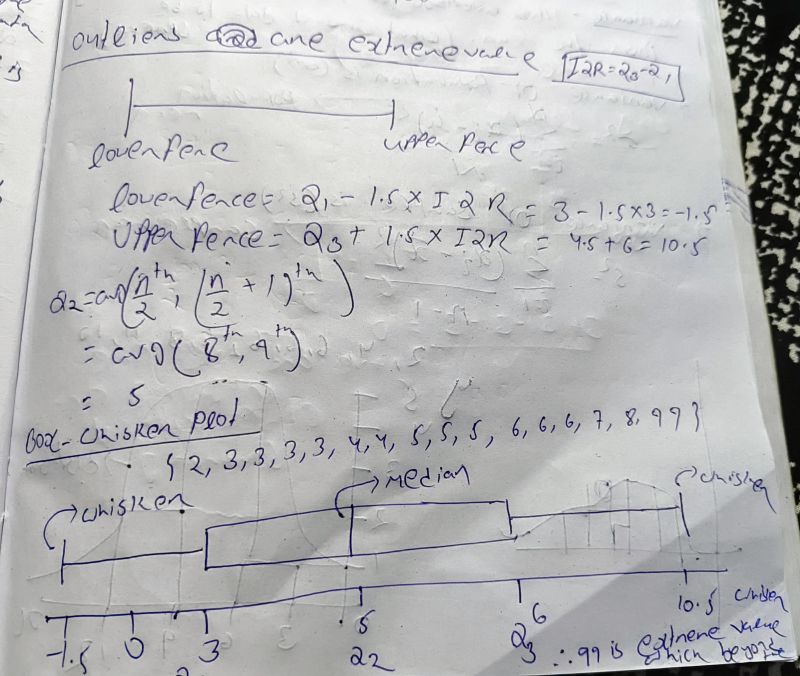 outliers are extreme value
IQR = Q3 - Q1
lower fence
upper fence
lower fence = Q1 - 1.5 × IQR = 3 - 1.5×3 = -1.5
Upper fence = Q3 + 1.5 × IQR = 4.5 + 6 = 10.5
Q2 = avg(n/2 th, (n/2 + 1)th)
= avg(8th, 9th)
= 5
Box-Whisker plot
{ 2, 3, 3, 3, 3, 4, 4, 5, 5, 5, 6, 6, 6, 7, 8, 99 }
→ whisker
→ Median
→ whisker
-1.5 0 3 5 6 10.5
Q2 Q3
∴ 99 is extreme value
which beyond